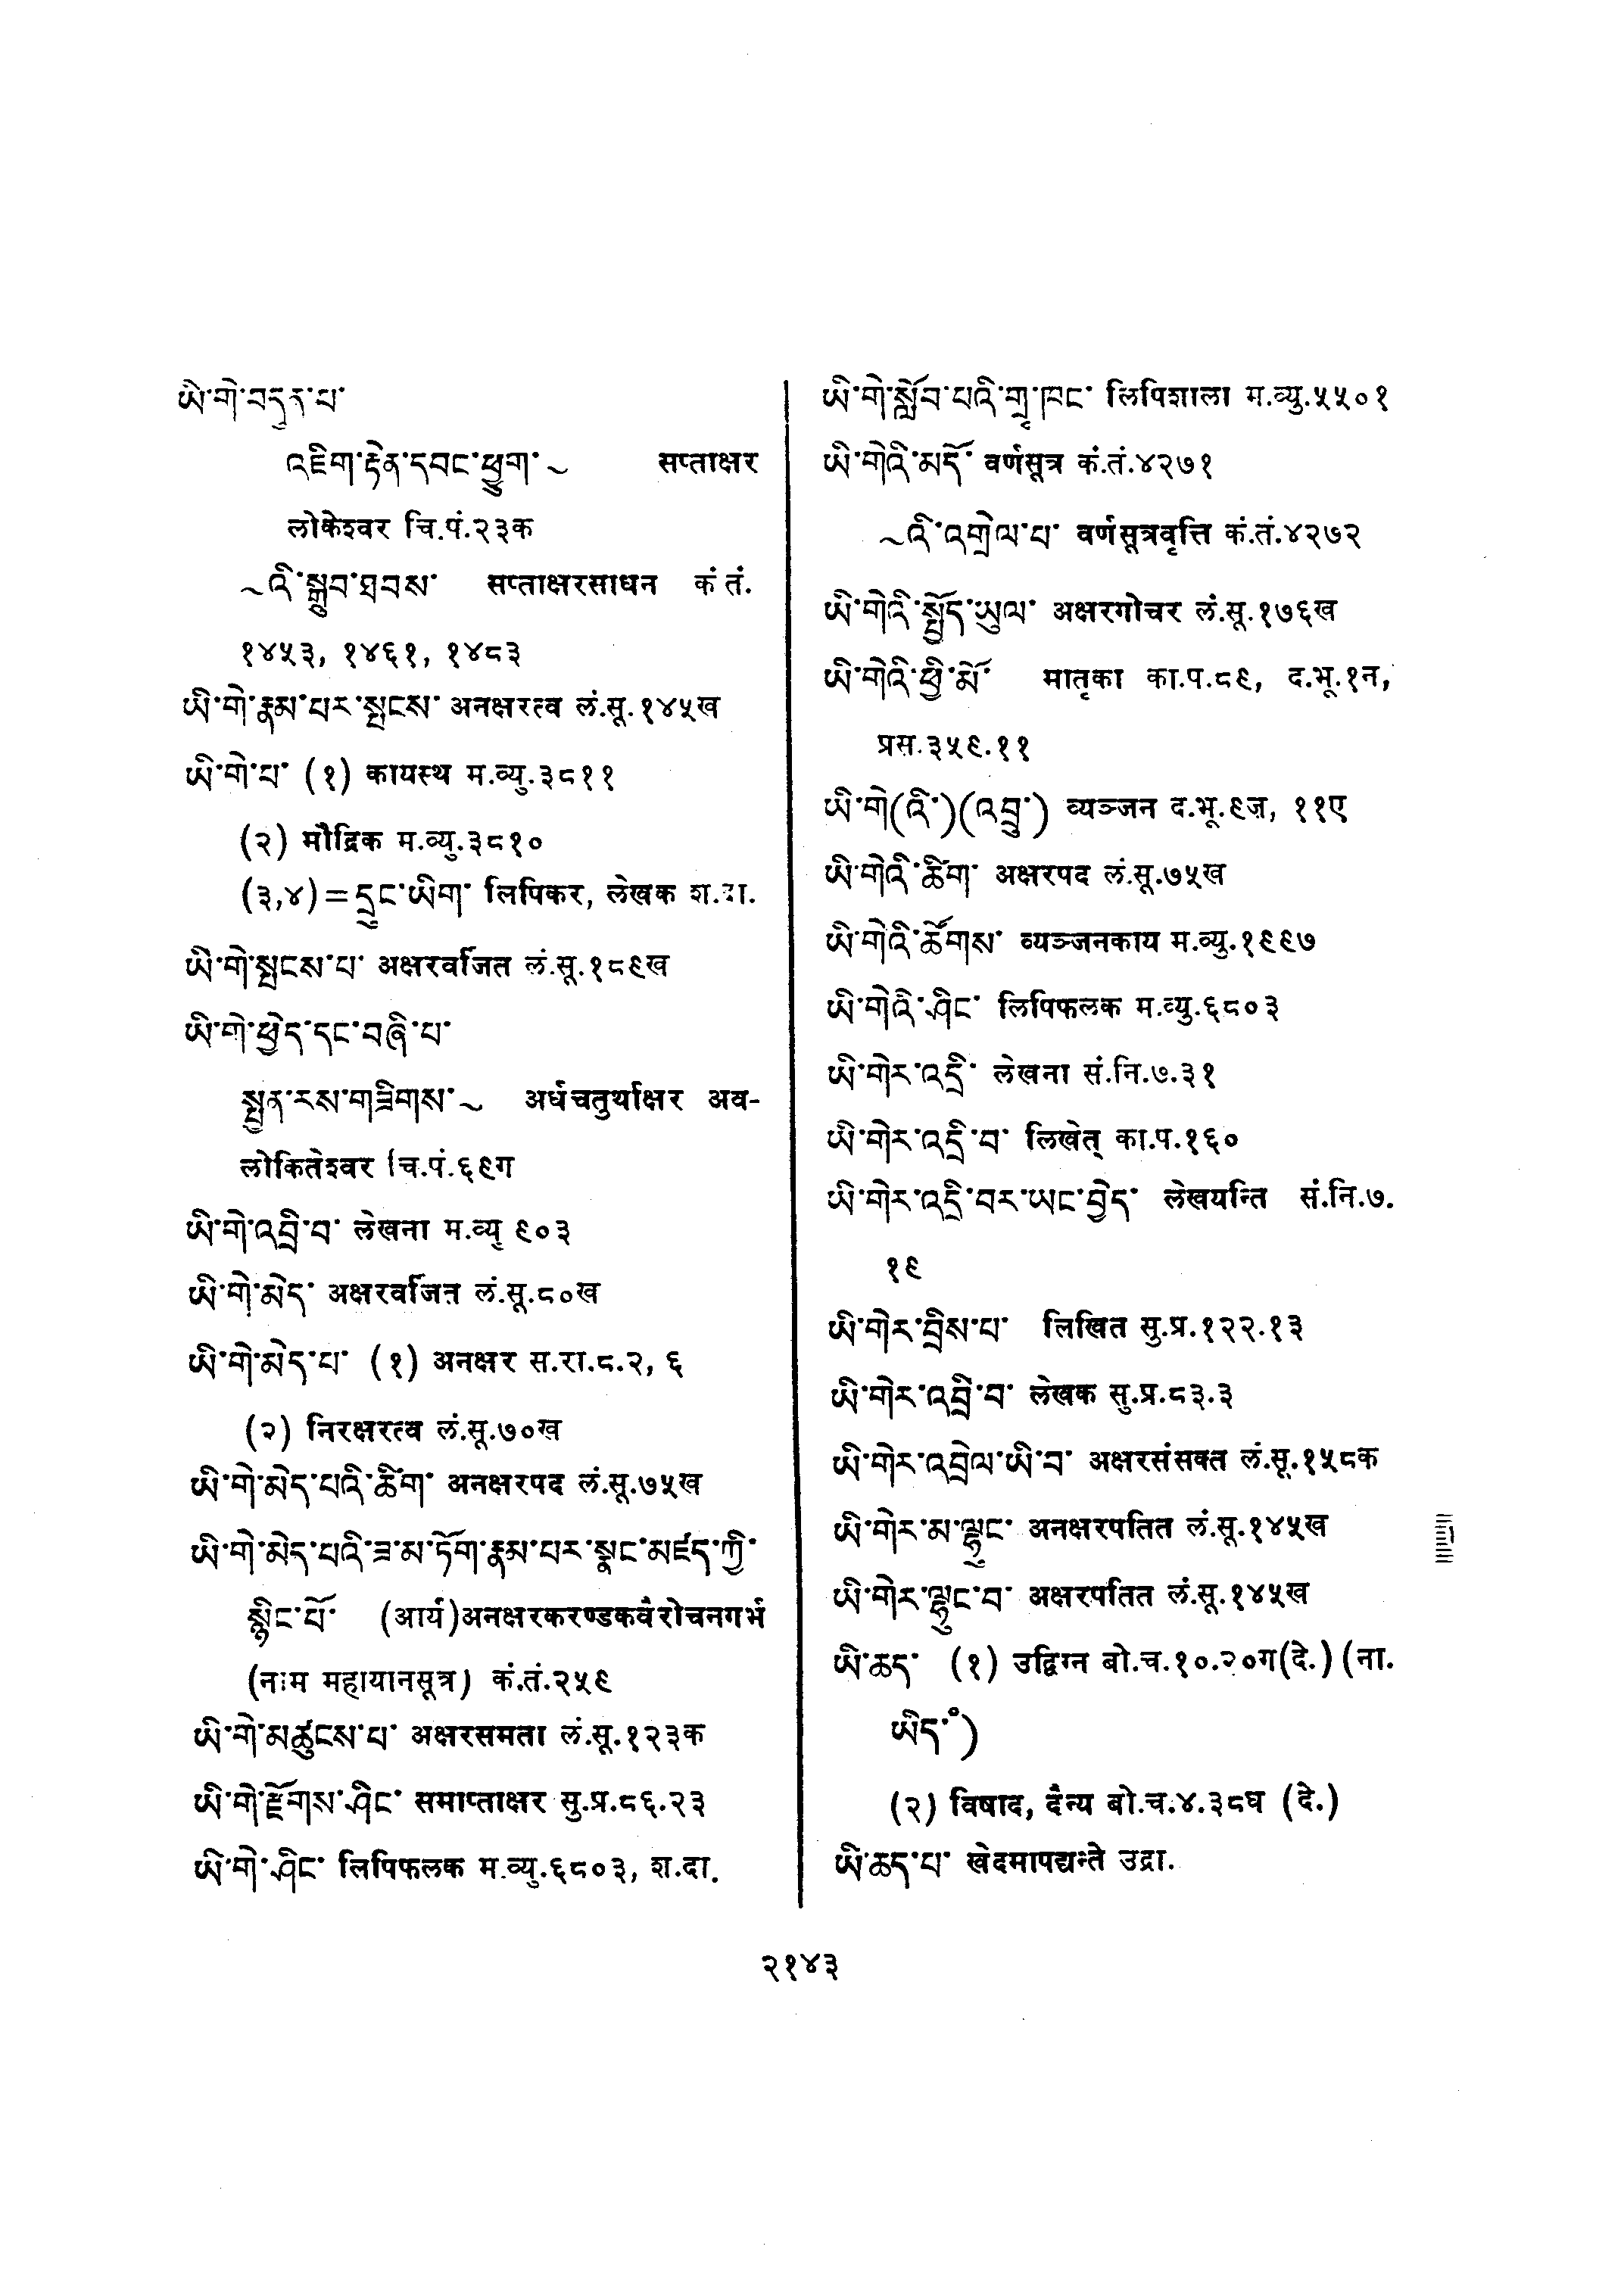 ཡི་གེ་བདུན་པ་
འཇིག་རྟེན་དབང་ཕྱུག་~ सप्ताक्षर
लोकेश्वर चि.पं.२३क
~འི་སྒྲུབ་ཐབས་ सप्ताक्षरसाधन कं तं.
१४५३, १४६१, १४८३
ཡི་གེ་རྣམ་པར་སྤངས་ अनक्षरत्व लं.सू.१४५ख
ཡི་གེ་པ་ (१) कायस्थ म.व्यु.३८११
(२) मौद्रिक म.व्यु.३८१०
(३,४)=དྲུང་ཡིག་ लिपिकर, लेखक श.दा.
ཡི་གེ་སྤངས་པ་ अक्षरवर्जित लं.सू.१८९ख
ཡི་གེ་ཕྱེད་དང་བཞི་པ་
སྤྱན་རས་གཟིགས་~ अर्धचतुर्थाक्षर अव-
लोकितेश्वर चि.पं.६९ग
ཡི་གེ་འབྲི་བ་ लेखना म.व्यु ९०३
ཡི་གེ་མེད་ अक्षरवर्जित लं.सू.८०ख
ཡི་གེ་མེད་པ་ (१) अनक्षर स.रा.८.२, ६
(२) निरक्षरत्व लं.सू.७०ख
ཡི་གེ་མེད་པའི་ཚིག་ अनक्षरपद लं.सू.७५ख
ཡི་གེ་མེད་པའི་ཟ་མ་ཏོག་རྣམ་པར་སྣང་མཛད་ཀྱི་
སྙིང་པོ་ (आर्य)अनक्षरकरण्डकवैरोचनगर्भ
(नाम महायानसूत्र) कं.तं.२५९
ཡི་གེ་མཚུངས་པ་ अक्षरसमता लं.सू.१२३क
ཡི་གེ་རྫོགས་ཤིང་ समाप्ताक्षर सु.प्र.८६.२३
ཡི་གེ་ཤིང་ लिपिफलक म.व्यु.६८०३, श.दा.
ཡི་གེ་སློབ་པའི་གྲྭ་ཁང་ लिपिशाला म.व्यु.५५०१
ཡི་གེའི་མདོ་ वर्णसूत्र कं.तं.४२७१
~འི་འགྲེལ་པ་ वर्णसूत्रवृत्ति कं.तं.४२७२
ཡི་གེའི་སྤྱོད་ཡུལ་ अक्षरगोचर लं.सू.१७६ख
ཡི་གེའི་ཕྱི་མོ་ मातृका का.प.८९, द.भू.१न,
प्रस.३५९.११
ཡི་གེ(འི་)(འབྲུ་) व्यञ्जन द.भू.९ज, ११ए
ཡི་གེའི་ཚིག་ अक्षरपद लं.सू.७५ख
ཡི་གེའི་ཚོགས་ व्यञ्जनकाय म.व्यु.१९९७
ཡི་གེའི་ཤིང་ लिपिफलक म.व्यु.६८०३
ཡི་གེར་འདྲི་ लेखना सं.नि.७.३१
ཡི་གེར་འདྲི་བ་ लिखेत् का.प.१६०
ཡི་གེར་འདྲི་བར་ཡང་བྱེད་ लेखयन्ति सं.नि.७.
१९
ཡི་གེར་བྲིས་པ་ लिखित सु.प्र.१२२.१३
ཡི་གེར་འབྲི་བ་ लेखक सु.प्र.८३.३
ཡི་གེར་འབྲེལ་ཡི་བ་ अक्षरसंसक्त लं.सू.१५८क
ཡི་གེར་མ་ལྷུང་ अनक्षरपतित लं.सू.१४५ख
ཡི་གེར་ལྷུང་བ་ अक्षरपतित लं.सू.१४५ख
ཡི་ཆད་ (१) उद्विग्न बो.च.१०.२०ग(दे.) (ना.
ཡིད་°)
(२) विषाद, दैन्य बो.च.४.३८घ (दे.)
ཡི་ཆད་པ་ खेदमापद्यन्ते उद्रा.
२१४३